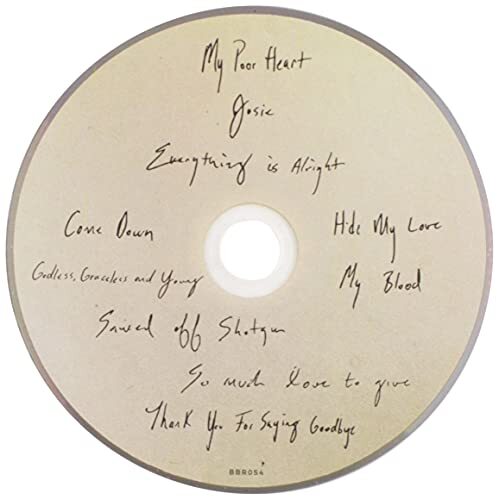 My Poor Heart
Josie
Everything is Alright
Come Down
Hide My Love
Godless, Graceless and Young
My Blood
Sawed off Shotgun
So much love to give
Thank You For Saying Goodbye
BBR054